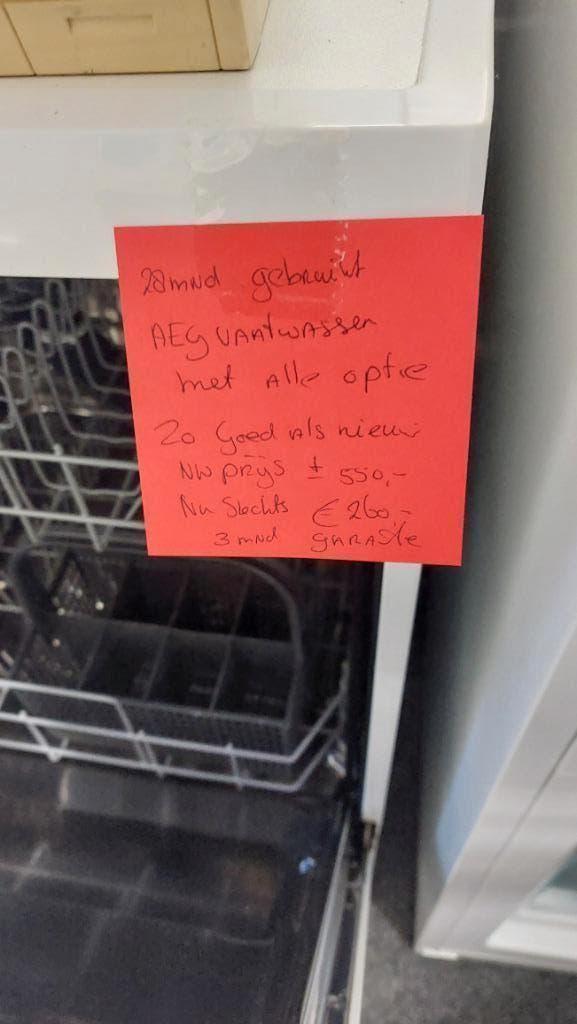 28mnd gebruikt
AEG VAATWASSER
met Alle optie
Zo Goed Als nieuw
NW PRijs ± 550,-
Nu Slechts € 260-
3 mnd GARANTIE